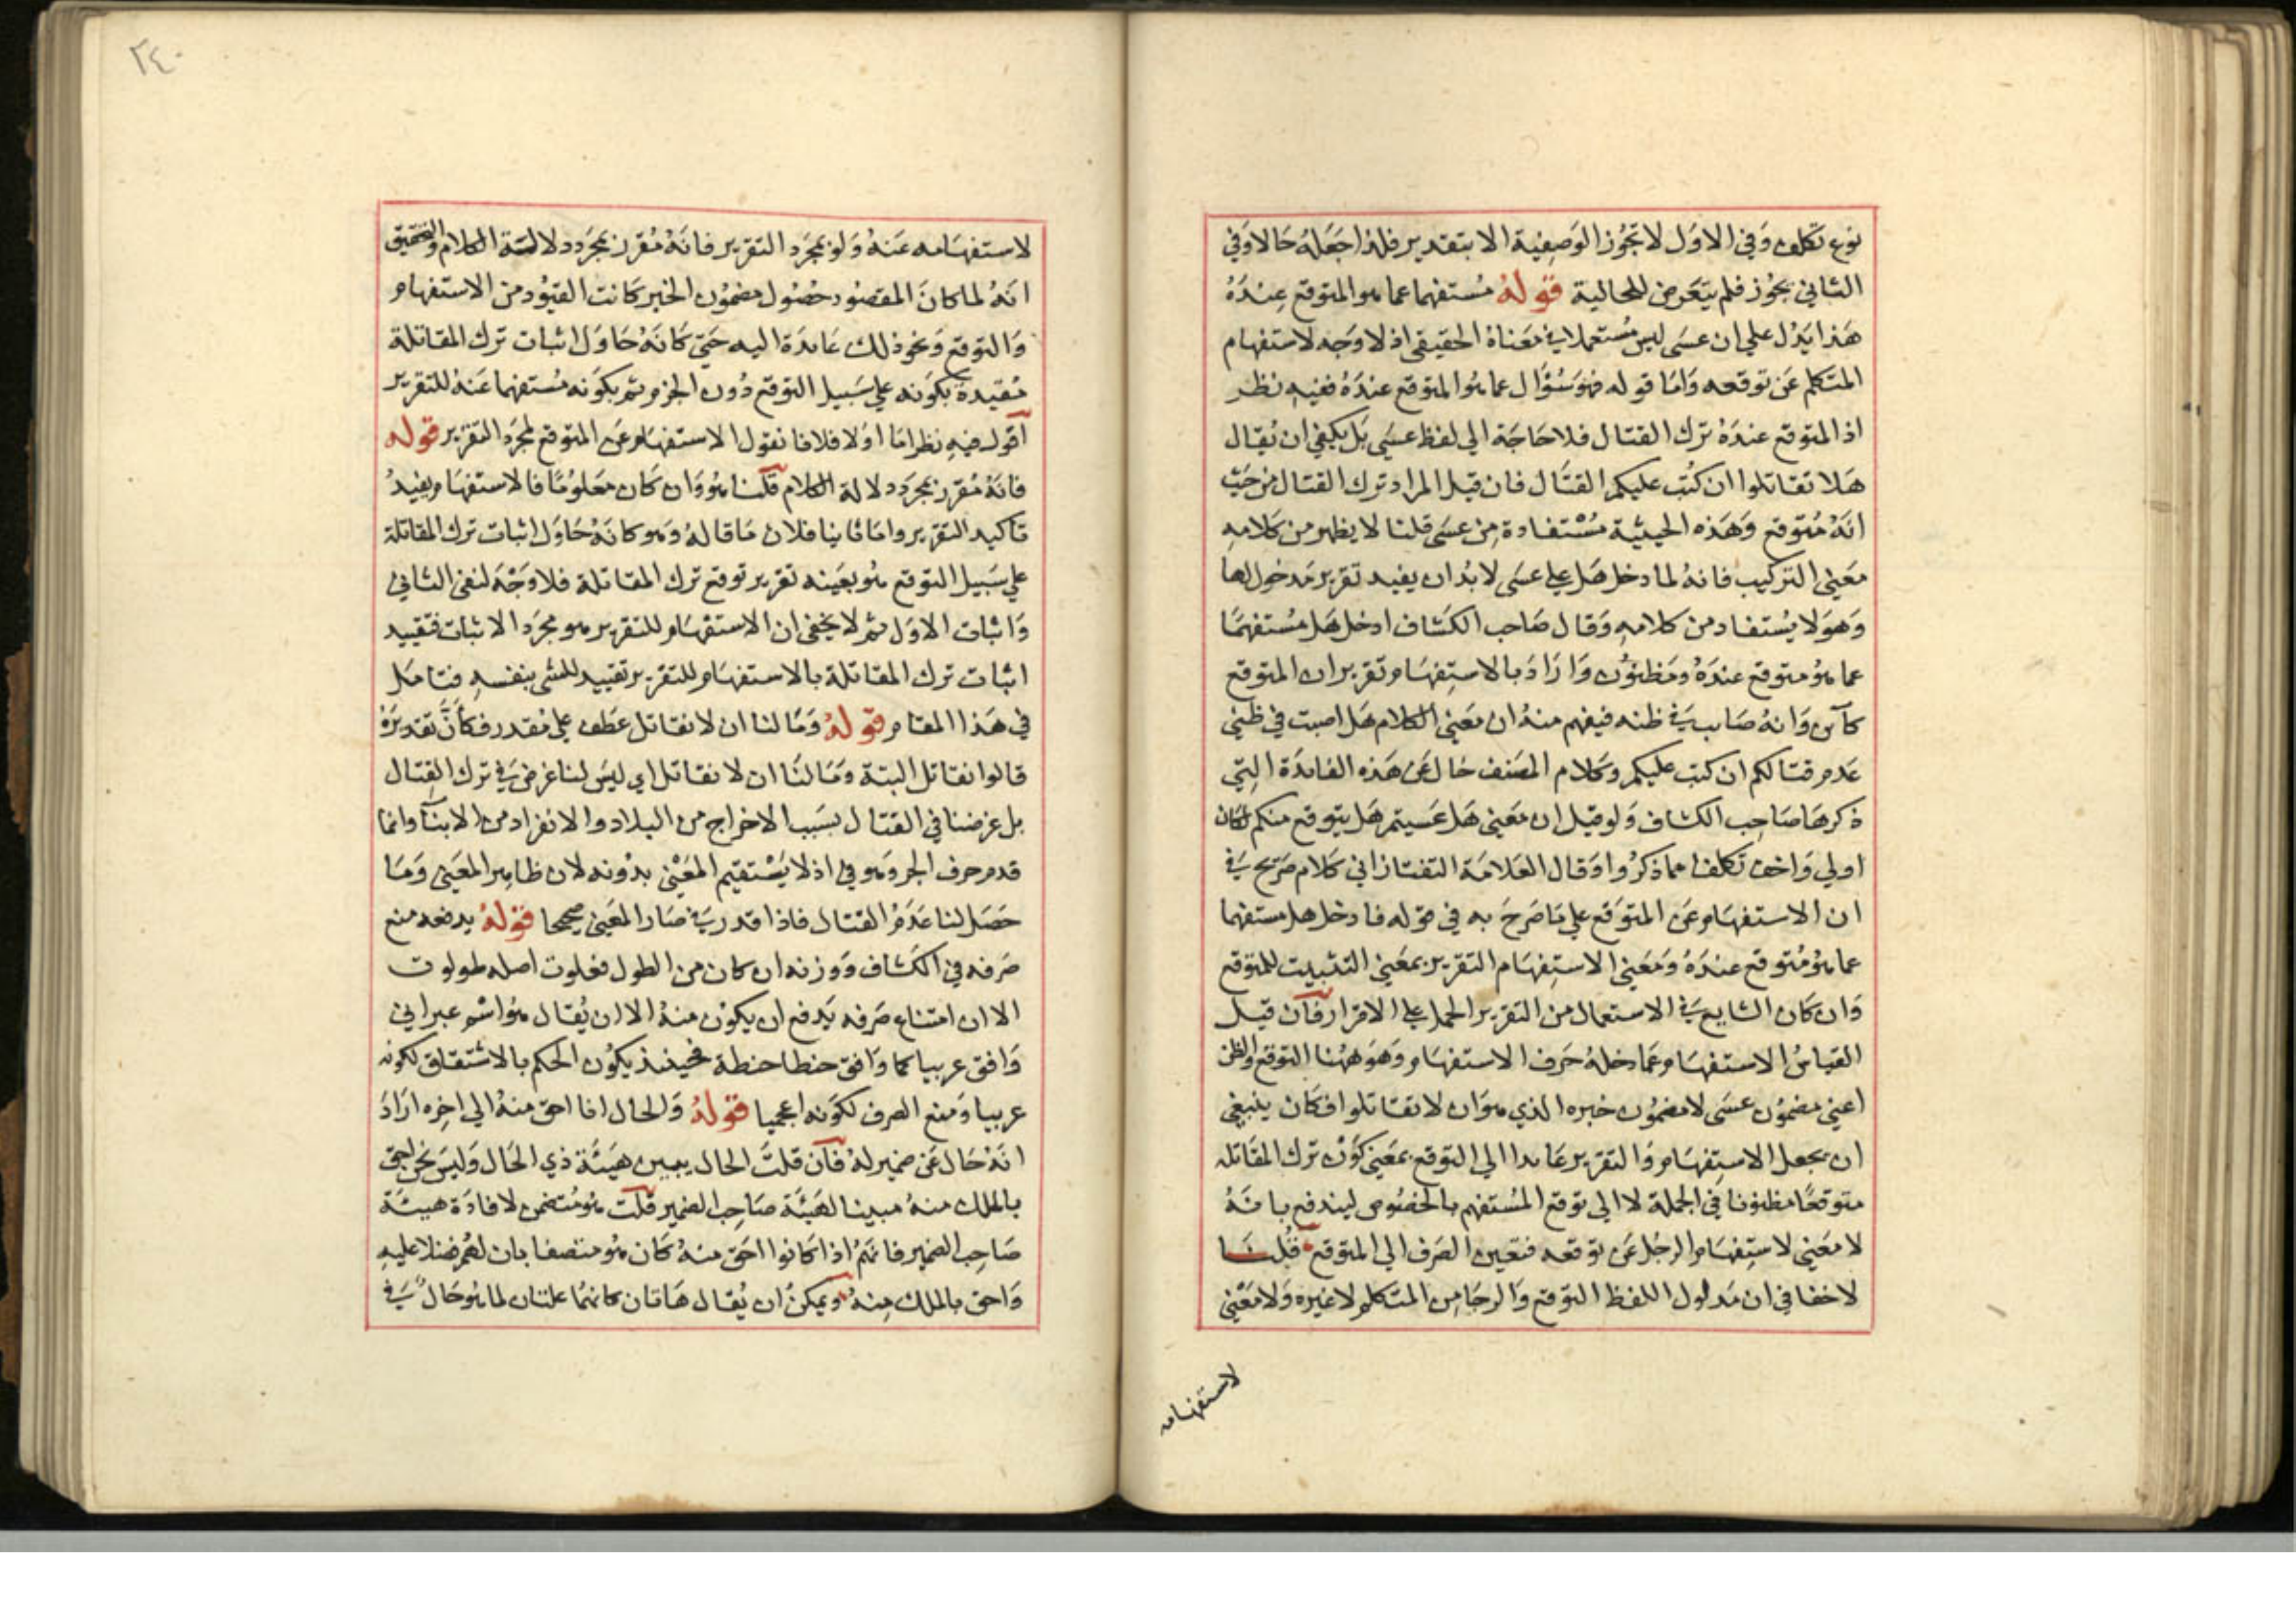 نوع تكلف وفي الاول لا تجوز الوصفية الا بتقدير فلذا جعله حالا وفي
الثاني يجوز فلم يتعرض للحالية قوله مستفهما عما هو المتوقع عنده
هذا يدل علي ان عسى ليس مستعملا في معناه الحقيقي اذ لا وجه لاستفهام
المتكلم عن توقعه واما قوله فهو سؤال عما هو المتوقع عنده ففيه نظر
اذ المتوقع عنده ترك القتال فلا حاجة الي لفظ عسى بل يكفي ان يقال
هلا تقاتلوا ان كتب عليكم القتال فان قيل المراد ترك القتال من حيث
انه متوقع وهذه الحيثية مستفادة من عسى قلنا لا يظهر من كلامه
معني التركيب فانه لما دخل هل علي عسى لا بد ان يفيد تقرير مدخولها
وهو لا يستفاد من كلامه وقال صاحب الكشاف ادخل هل مستفهما
عما هو متوقع عنده ومظنون واراد بالاستفهام تقرير ان المتوقع
كآين وانه صايب في ظنه فيفهم منه ان معني الكلام هل اصبت في ظني
عدم قتالكم ان كتب عليكم وكلام المصنف خال عن هذه الفايدة التي
ذكرها صاحب الكشاف ولو قيل ان معني هل عسيتم هل يتوقع منكم لكان
اولي واخف تكلفا مما ذكروا وقال العلامة التفتازاني كلام صريح في
ان الاستفهام عن المتوقع علي ما صرح به في قوله فادخل هل مستفهما
عما هو متوقع عنده ومعني الاستفهام التقرير بمعني التثبيت للمتوقع
وان كان الشايع في الاستعمال من التقرير الحمل علي الاقرار فان قيل
القياس الاستفهام عما دخله حرف الاستفهام وهو ههنا التوقع والظن
اعني مضمون عسى لا مضمون خبره الذي هو ان لا تقاتلوا فكان ينبغي
ان يجعل الاستفهام والتقرير عايدا الي التوقع بمعني كون ترك المقاتله
متوقعا مظنونا في الجملة لا الي توقع المستفهم بالخصوص ليندفع بانه
لا معني لاستفهام الرجل عن توقعه فتعين الصرف الي المتوقع قلنا
لا خفا في ان مدلول اللفظ التوقع والرجا من المتكلم لا غيره ولا معني
لاستفهامه
٢٤٠
لاستفهامه عنه ولو بمجرد التقرير فانه مقرر بمجرد دلالة الكلام والتحقيق
انه لما كان المقصود حصول مضمون الخبر كانت القيود من الاستفهام
والتوقع ونحو ذلك عايدة اليه حتي كانه حاول اثبات ترك المقاتلة
مقيدة بكونه علي سبيل التوقع دون الجزم ثم بكونه مستفهما عنه للتقرير
اقول فيه نظر اما اولا فلانا نقول الاستفهام عن المتوقع لمجرد التقرير قوله
فانه مقرر بمجرد دلالة الكلام قلنا هو وان كان معلوما فالاستفهام يفيد
تاكيد التقرير واما ثانيا فلان ما قاله وهو كانه حاول اثبات ترك المقاتلة
علي سبيل التوقع هو بعينه تقرير توقع ترك المقاتلة فلا وجه لنفي الثاني
واثبات الاول ثم لا يخفى ان الاستفهام للتقرير هو مجرد الاثبات فتقييد
اثبات ترك المقاتلة بالاستفهام للتقرير تقييد للشي بنفسه فتامل
في هذا المقام قوله ومالنا ان لا نقاتل عطف علي مقدر فكأن تقديره
قالوا نقاتل البتة ومالنا ان لا نقاتل اي ليس لنا غرض في ترك القتال
بل غرضنا في القتال بسبب الاخراج من البلاد والانفراد من الابنآ وانما
قدم حرف الجر وهو في اذ لا يستقيم المعني بدونه لان ظاهر المعني وما
حصل لنا عدم القتال فاذا قدر في صار المعني صحيحا قوله يدفعه منع
صرفه في الكشاف ووزنه ان كان من الطول فعلوت اصله طولوت
الا ان امتناع صرفه يدفع ان يكون منه الا ان يقال هو اسم عبراني
وافق عربيا كما وافق حنطا حنطة فحينئذ يكون الحكم بالاشتقاق لكونه
عربيا ومنع الصرف لكونه اعجميا قوله والحال انا احق منه الي اخره اراد
انه حال عن ضمير له فان قلت الحال يبين هيئة ذي الحال وليس نحن احق
بالملك منه مبينا لهيئة صاحب الضمير قلت هو متضمن لافادة هيئة
صاحب الضمير فانهم اذا كانوا احق منه كان هو متصفا بان لهم فضلا عليه
واحق بالملك منه ويمكن ان يقال هاتان كانهما علتان لما هو حال في